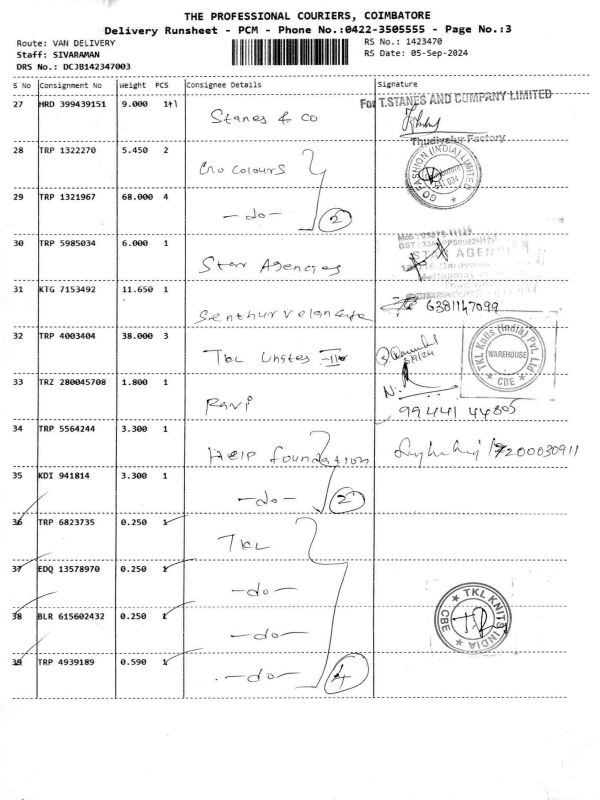 THE PROFESSIONAL COURIERS, COIMBATORE
Delivery Runsheet - PCM - Phone No.:0422-3505555 - Page No.:3
Route: VAN DELIVERY
RS No.: 1423470
Staff: SIVARAMAN
RS Date: 05-Sep-2024
DRS No.: DCJB142347003
S No Consignment No Weight PCS Consignee Details Signature
27 HRD 399439151 9.000 1+1 Stanes & Co
For T.STANES AND COMPANY LIMITED
Thudiyalur Factory
28 TRP 1322270 5.450 2 Go colours
GO FASHION (INDIA) LIMITED
641 034
29 TRP 1321967 68.000 4 -do- 2
30 TRP 5985034 6.000 1 Star Agencies
STAR AGENC
31 KTG 7153492 11.650 1 Senthur velan
6381147099
32 TRP 4003404 38.000 3 TKL Unites II
5/9/24
TKL Knits (India) Pvt. Ltd
WAREHOUSE
CBE
33 TRZ 280045708 1.800 1 Ravi
99441 44805
34 TRP 5564244 3.300 1 Help foundation
7200030911
35 KDI 941814 3.300 1 -do- 2
36 TRP 6823735 0.250 1 TKL
37 EDQ 13578970 0.250 1 -do-
38 BLR 615602432 0.250 1 -do-
TKL KNITS INDIA
CBE
39 TRP 4939189 0.590 1 -do- 4